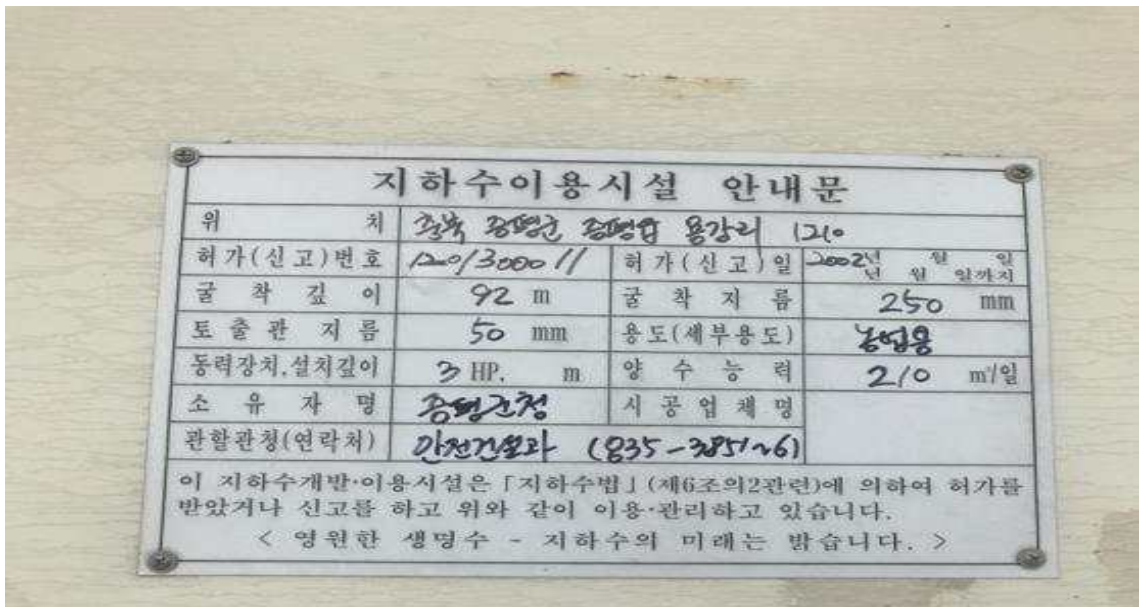 지하수이용시설 안내문
위 치 충북 증평군 증평읍 용강리 1210
허가(신고)번호 1201300011 허가(신고)일 2002년 월 일
년 월 일까지
굴착깊이 92 m 굴착지름 250 mm
토출관 지름 50 mm 용도(세부용도) 농업용
동력장치,설치깊이 3 HP, m 양수능력 210 m³/일
소유자명 증평군청 시공업체명
관할관청(연락처) 안전건설과 (835-3851~6)
이 지하수개발·이용시설은 「지하수법」(제6조의2관련)에 의하여 허가를
받았거나 신고를 하고 위와 같이 이용·관리하고 있습니다.
< 영원한 생명수 - 지하수의 미래는 밝습니다. >